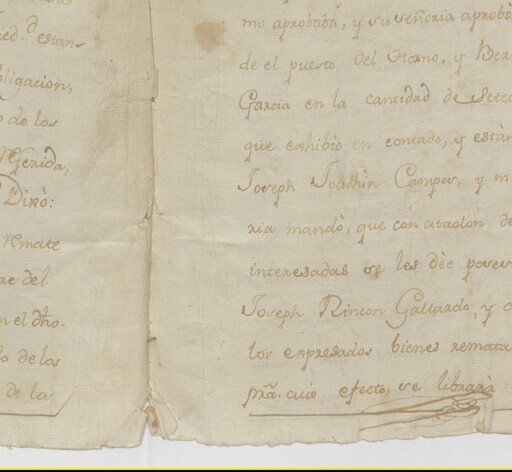 ied.d estan-
bligacion,
o de los
Merida,
Dixo:
remate
ae del
n el dho.
lo de las
de la
mo aprobaba, y su señoria aprobó
de el puesto del Horno, y Ber
Garcia en la cantidad de Setec
que exhibio en contado, y están
Joseph Joachin Campos, y m
ria mandò, que con citacion de
interesadas se les dèe poses
Joseph Rincon Gallardo, y
los expresados bienes remata
pra. cuio efecto, se librarà